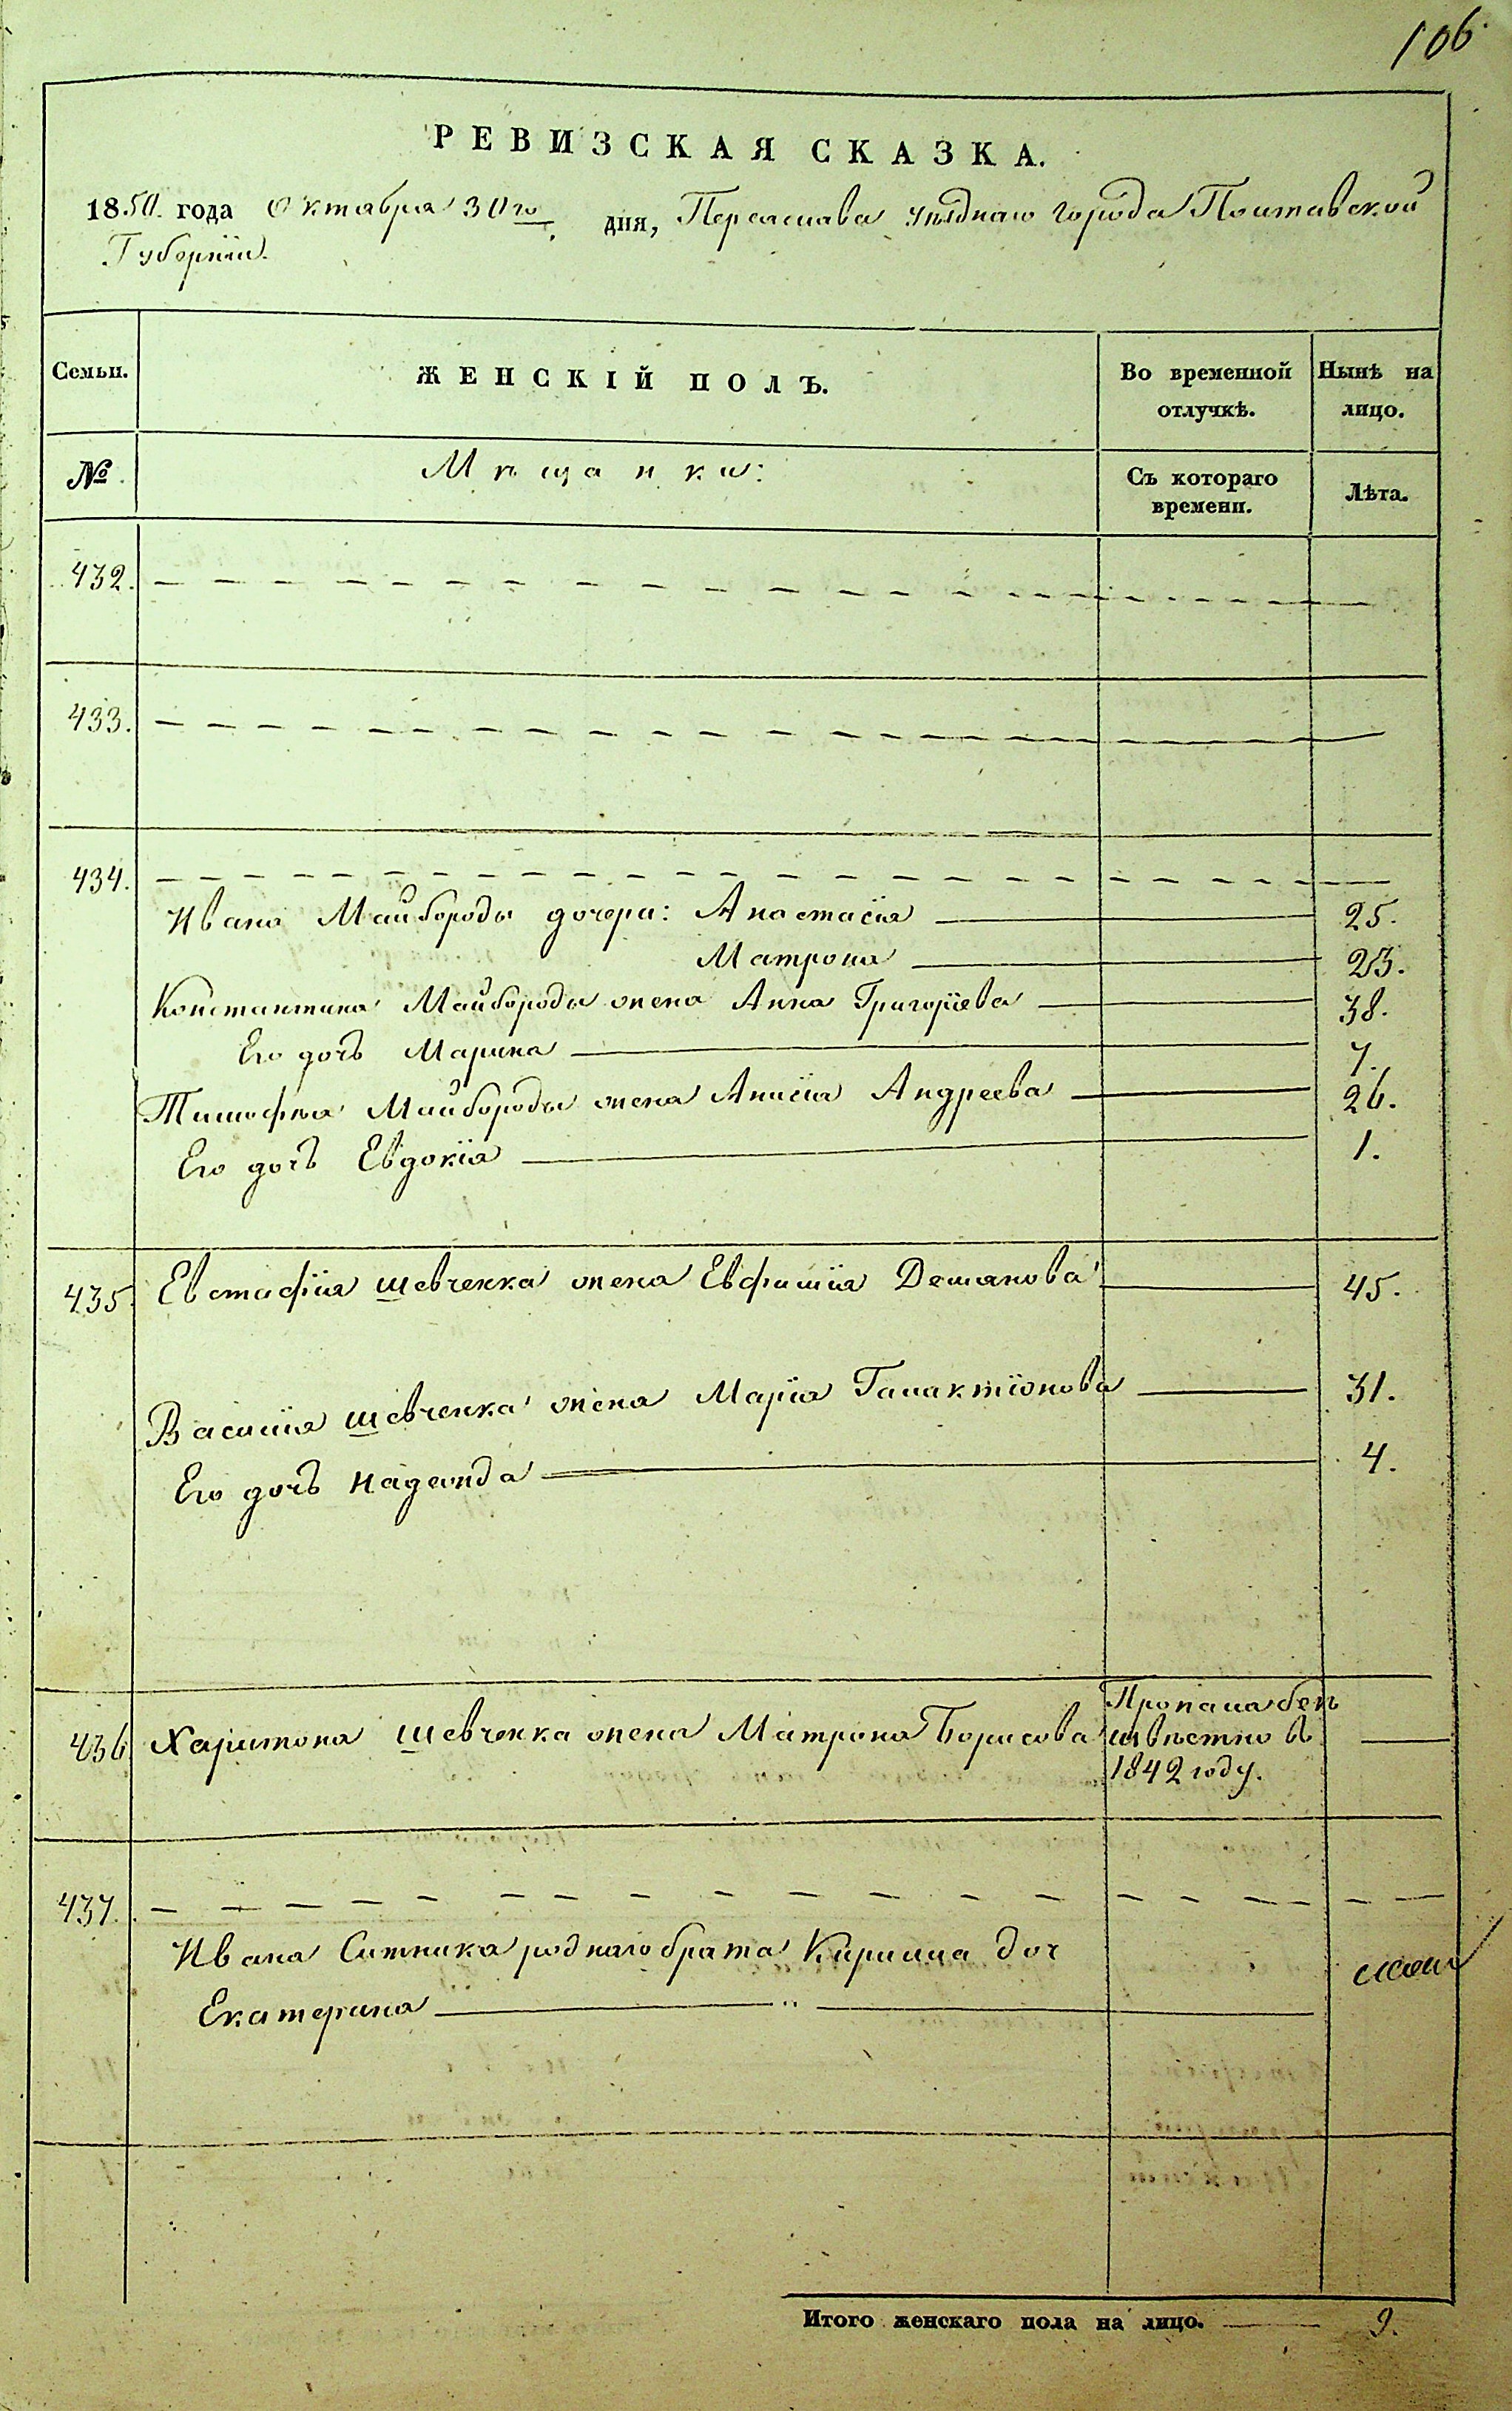 106.
РЕВИЗСКАЯ СКАЗКА.
1850. года Октября 30го дня, Переяслава уѣзднаго города Полтавской
Губерніи.
Семьи.
ЖЕНСКІЙ ПОЛЪ.
Во временной отлучкѣ.
Нынѣ на лицо.
№
Мѣщанки:
Съ котораго времени.
Лѣта.
432.
433.
434.
Ивана Майбороды дочери: Анастасія 25.
Матрона 23.
Константина Майбороды жена Анна Григоріева 38.
Его дочь Марина 7.
Тимофѣя Майбороды жена Анисія Андреева 26.
Его дочь Евдокія 1.
435. Евстафія Шевченка жена Евфимія Демянова 45.
Василія Шевченка жена Марія Галактіонова 31.
Его дочь Надежда 4.
436. Харитона Шевченка жена Матрона Борисова
Пропала безъ
извѣстно въ
1842 году.
437.
Ивана Ситника роднаго брата Кирилла доч
Екатерина "
Итого женскаго пола на лицо. 9.